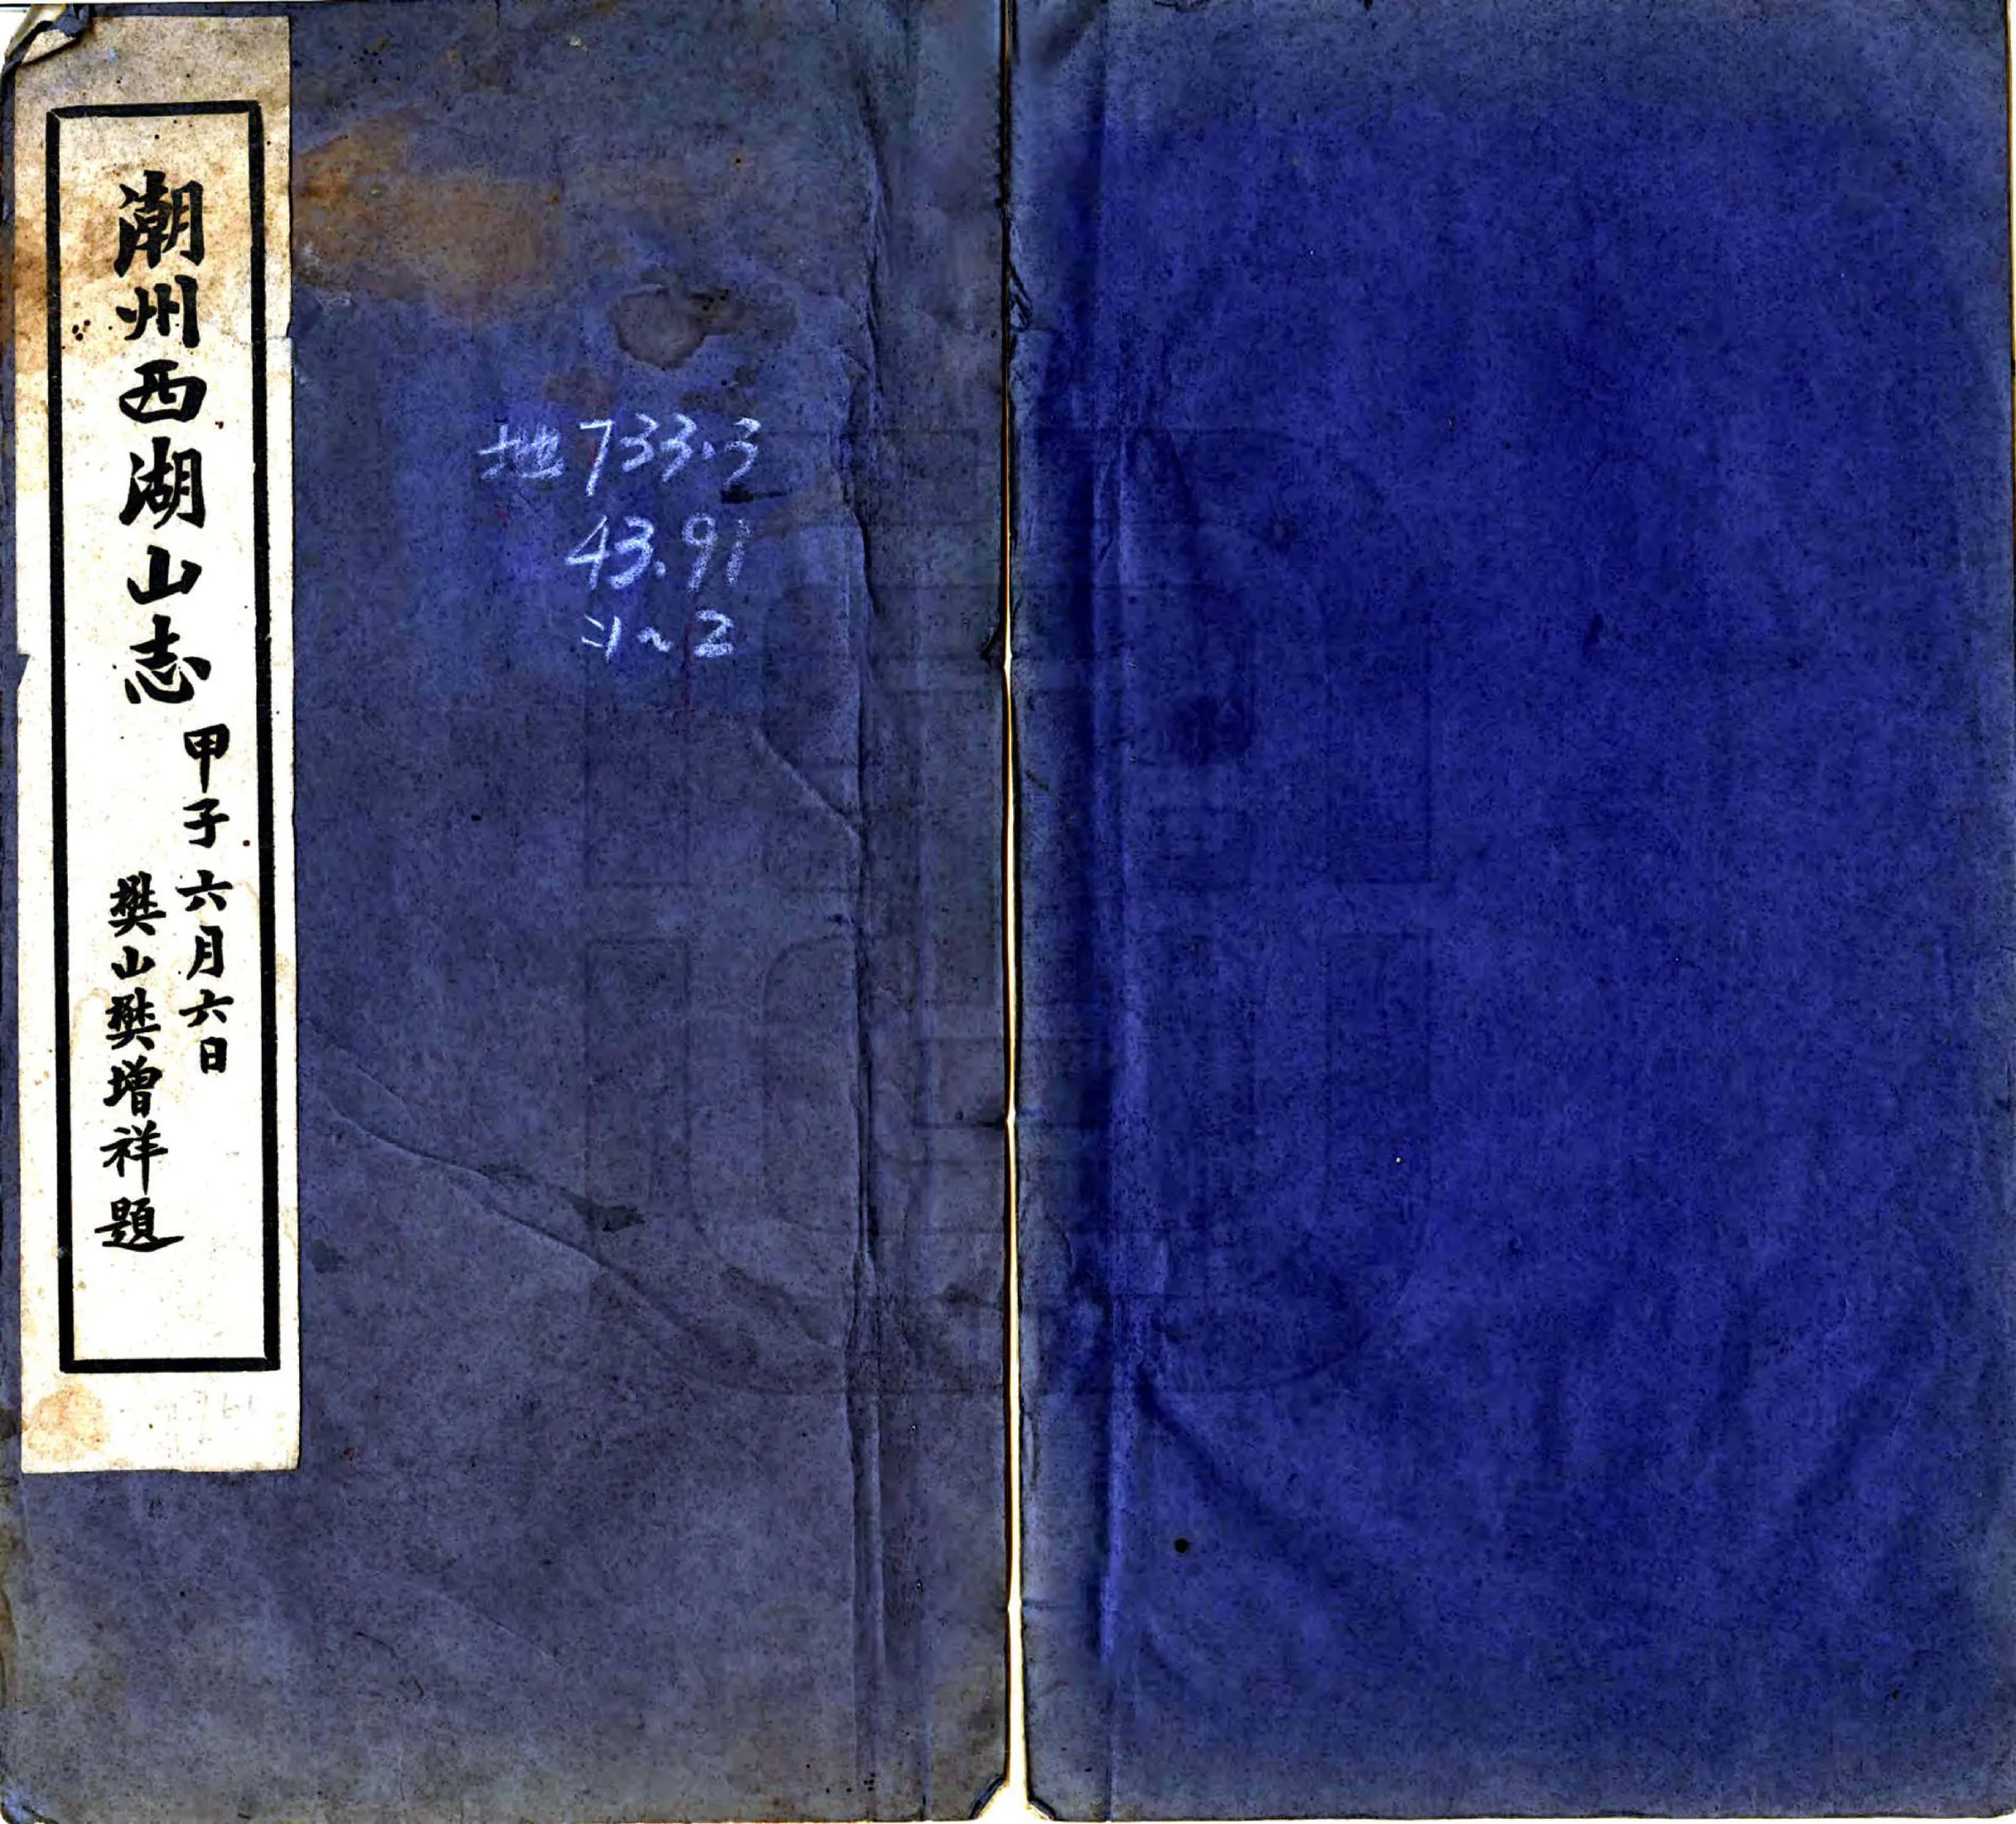 潮州西湖山志
甲子六月六日
樊山樊增祥題
地733.3
43.91
:1~2